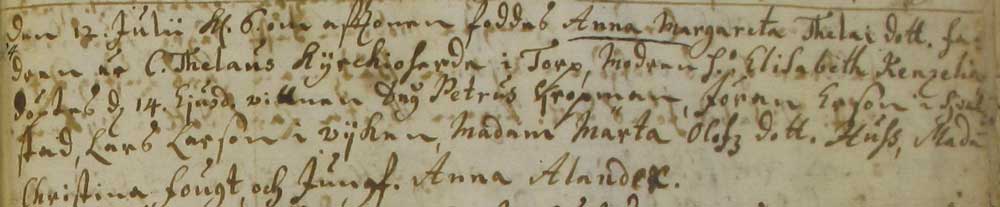 den 12. Julii Kl. 6. om afftonen föddes Anna Margareta Thelai dott. fa-
dren är C. Thelaus Kyrckioherde i Torp, Modren H. Elisabeth Kenzelia
döptes d. 14. Ejusd. vittnen Petrus Göran Erson i
stad, Lars Larson i Vijken, Madam Märta Olofz dott. Huss, Madm
Christina Fougt och Jungf. Anna Alander.